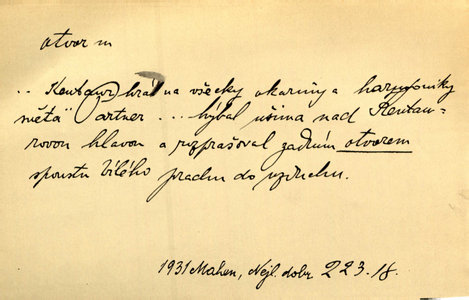 otvor m
.. Kentaur hrál na všecky okaríny a harmoniky
světa" Partner ... hýbal ušima nad Kentau-
rovou hlavou a rozprašoval zadním otvorem
spoustu bílého prachu do vzduchu.
1931 Mahen, Nejl. dobr. 223.18.